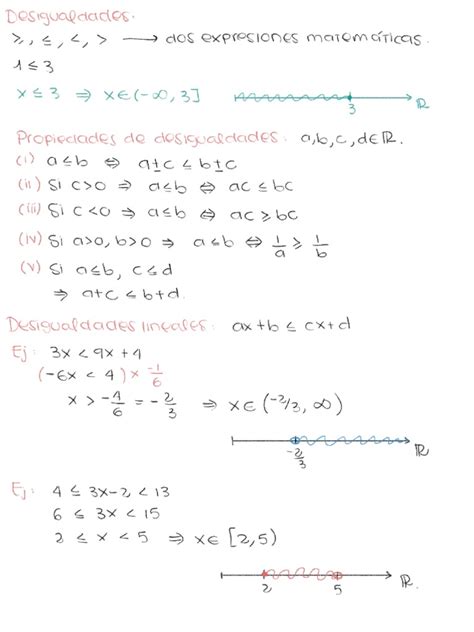 Desigualdades.
≥, ≤, <, > ⟶ dos expresiones matemáticas.
1 ≤ 3
x ≤ 3 ⇒ x∈(-∞, 3]
3 ℝ
Propiedades de desigualdades. a,b,c,d∈ℝ.
(i) a≤b ⇔ a±c ≤ b±c
(ii) Si c>0 ⇒ a≤b ⇔ ac ≤ bc
(iii) Si c<0 ⇒ a≤b ⇔ ac ≥ bc
(iv) Si a>0, b>0 ⇒ a≤b ⇔ 1/a ≥ 1/b
(v) Si a≤b, c≤d
⇒ a+c ≤ b+d.
Desigualdades lineales: ax+b ≤ cx+d
Ej: 3x < 9x + 4
(-6x < 4) × -1/6
x > -4/6 = -2/3 ⇒ x∈(-2/3, ∞)
-2/3 ℝ
Ej: 4 ≤ 3x-2 < 13
6 ≤ 3x < 15
2 ≤ x < 5 ⇒ x∈ [2,5)
2 5 ℝ.